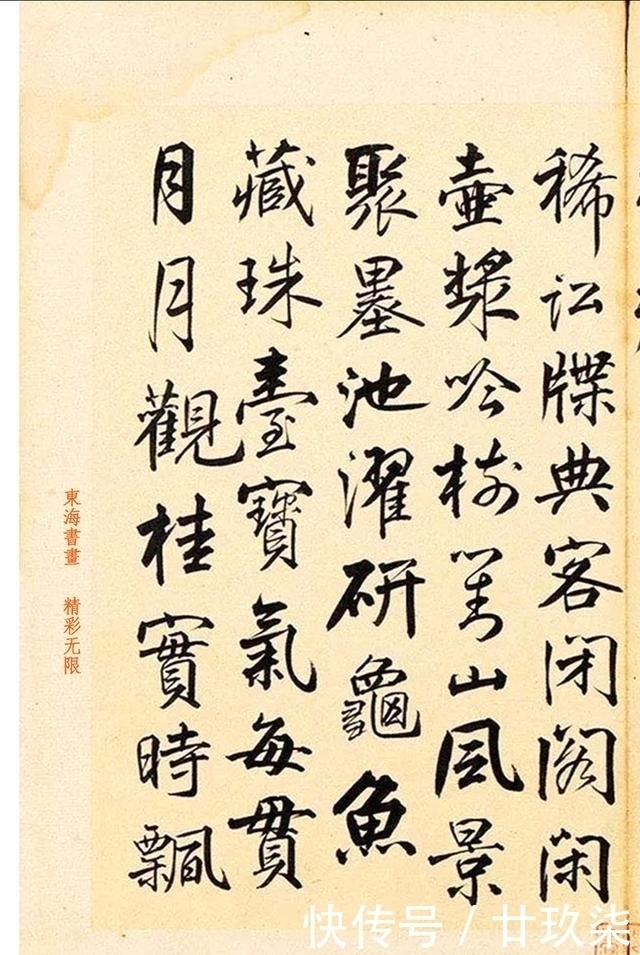 稀訟牒典客閉閣閑
壺漿吟樹對山風景
聚墨池濯研龜魚
藏珠臺寶氣每貫
月月觀桂實時飄
東海書畫 精彩无限
快传号 / 廿玖柒